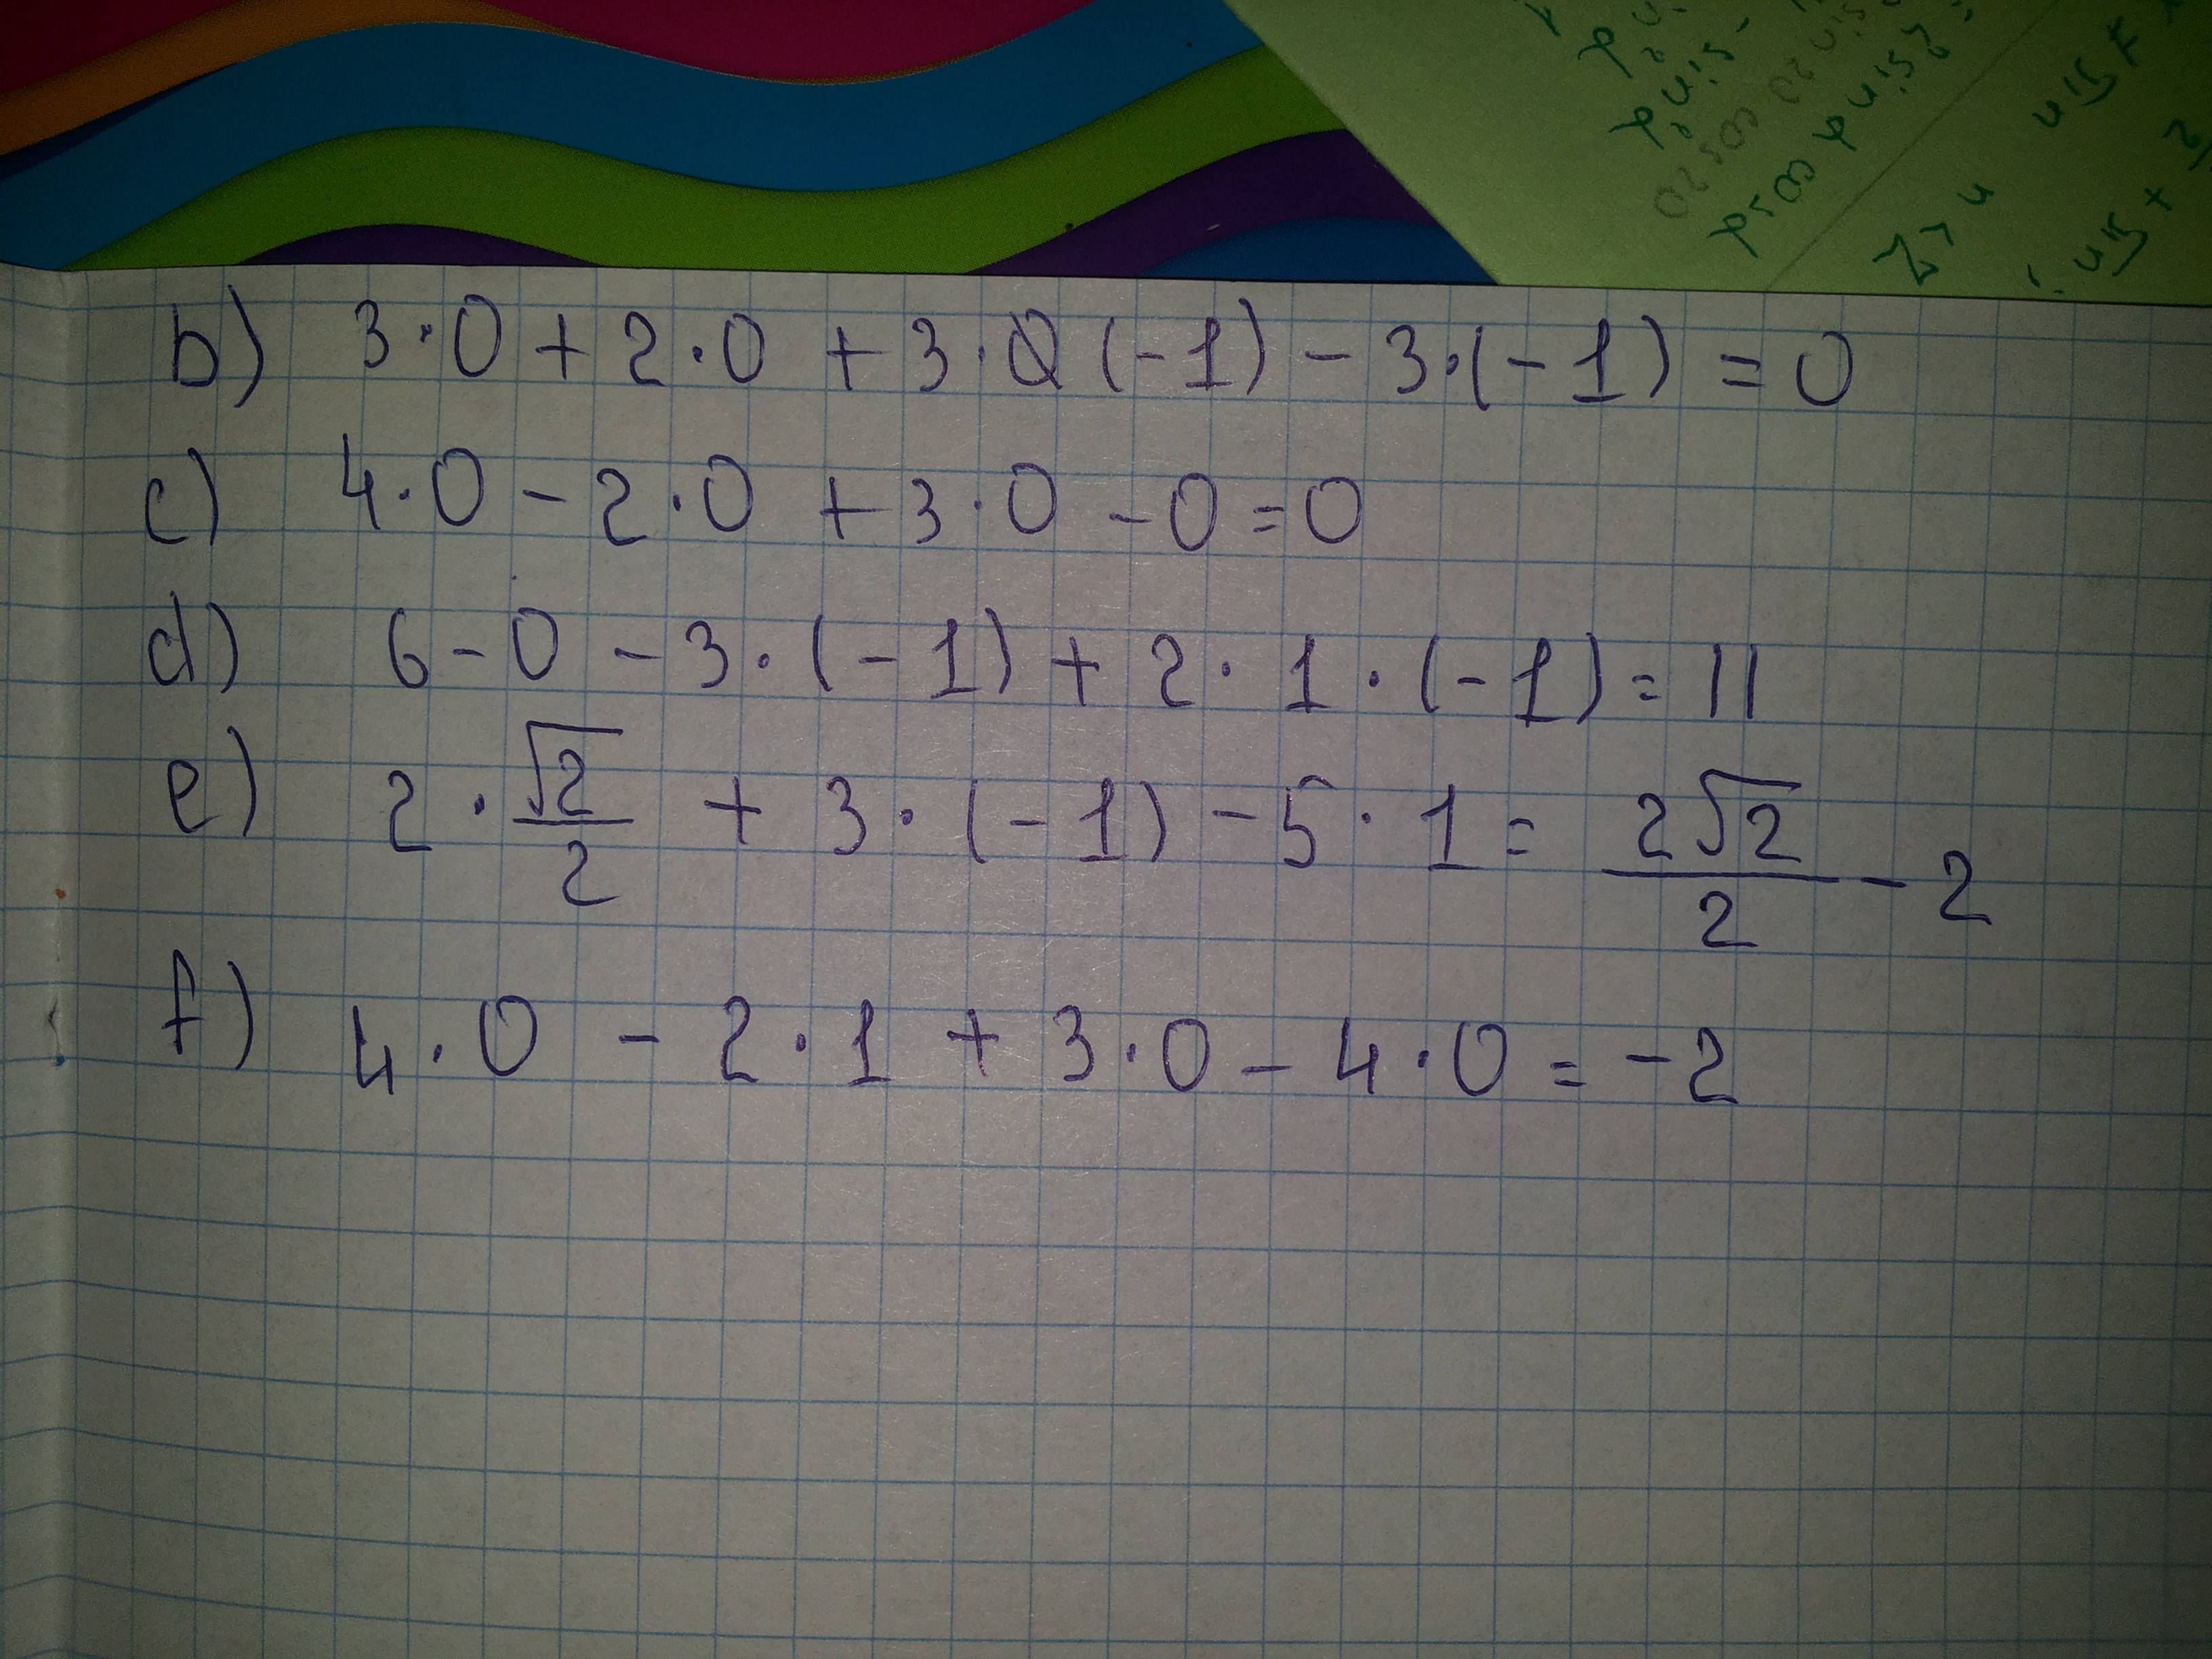 b) 3·0 + 2·0 + 3·(-1) - 3·(-1) = 0
c) 4·0 - 2·0 + 3·0 - 0 = 0
d) 6 - 0 - 3·(-1) + 2·1·(-1) = 11
e) 2·√2/2 + 3·(-1) - 5·1 = 2√2/2 - 2
f) 4·0 - 2·1 + 3·0 - 4·0 = -2